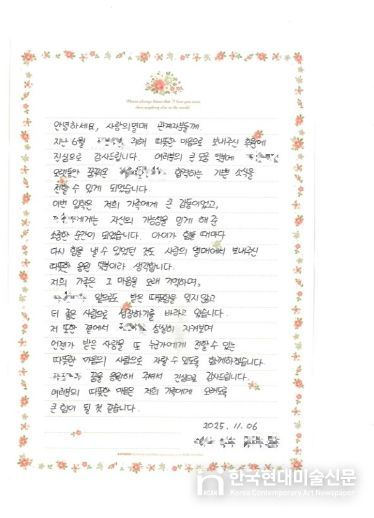 Please always know that I love you more
than anything else in the world.
안녕하세요, 사랑의열매 관계자분들께.
지난 6월 위해 따뜻한 마음으로 보내주신 후원에
진심으로 감사드립니다. 여러분의 큰 도움 덕분에
오랫동안 꿈꿔온 합격하는 기쁜 소식을
전할 수 있게 되었습니다.
이번 입학은 저희 가족에게 큰 감동이었고,
에게는 자신의 가능성을 믿게 해 준
소중한 순간이 되었습니다. 아이가 힘들 때마다
다시 힘을 낼 수 있었던 것도 사랑의 열매에서 보내주신
따뜻한 응원 덕분이라 생각합니다.
저희 가족은 그 마음을 오래 기억하며,
앞으로도 받은 따뜻함을 잊지 않고
더 좋은 사람으로 성장하기를 바라고 있습니다.
저 또한 곁에서 성실히 지켜보며
언젠가 받은 사랑을 또 누군가에게 전할 수 있는
따뜻한 마음의 사람으로 자랄 수 있도록 함께하겠습니다.
꿈을 응원해 주셔서 진심으로 감사드립니다.
여러분의 따뜻한 마음은 저희 가족에게 오래도록
큰 힘이 될 것 같습니다.
2025. 11. 06
한국현대미술신문
Korea Contemporary Art Newspaper